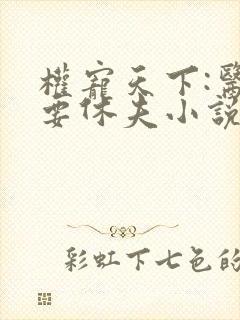 權寵天下:醫
要休夫小說
彩虹下七色的